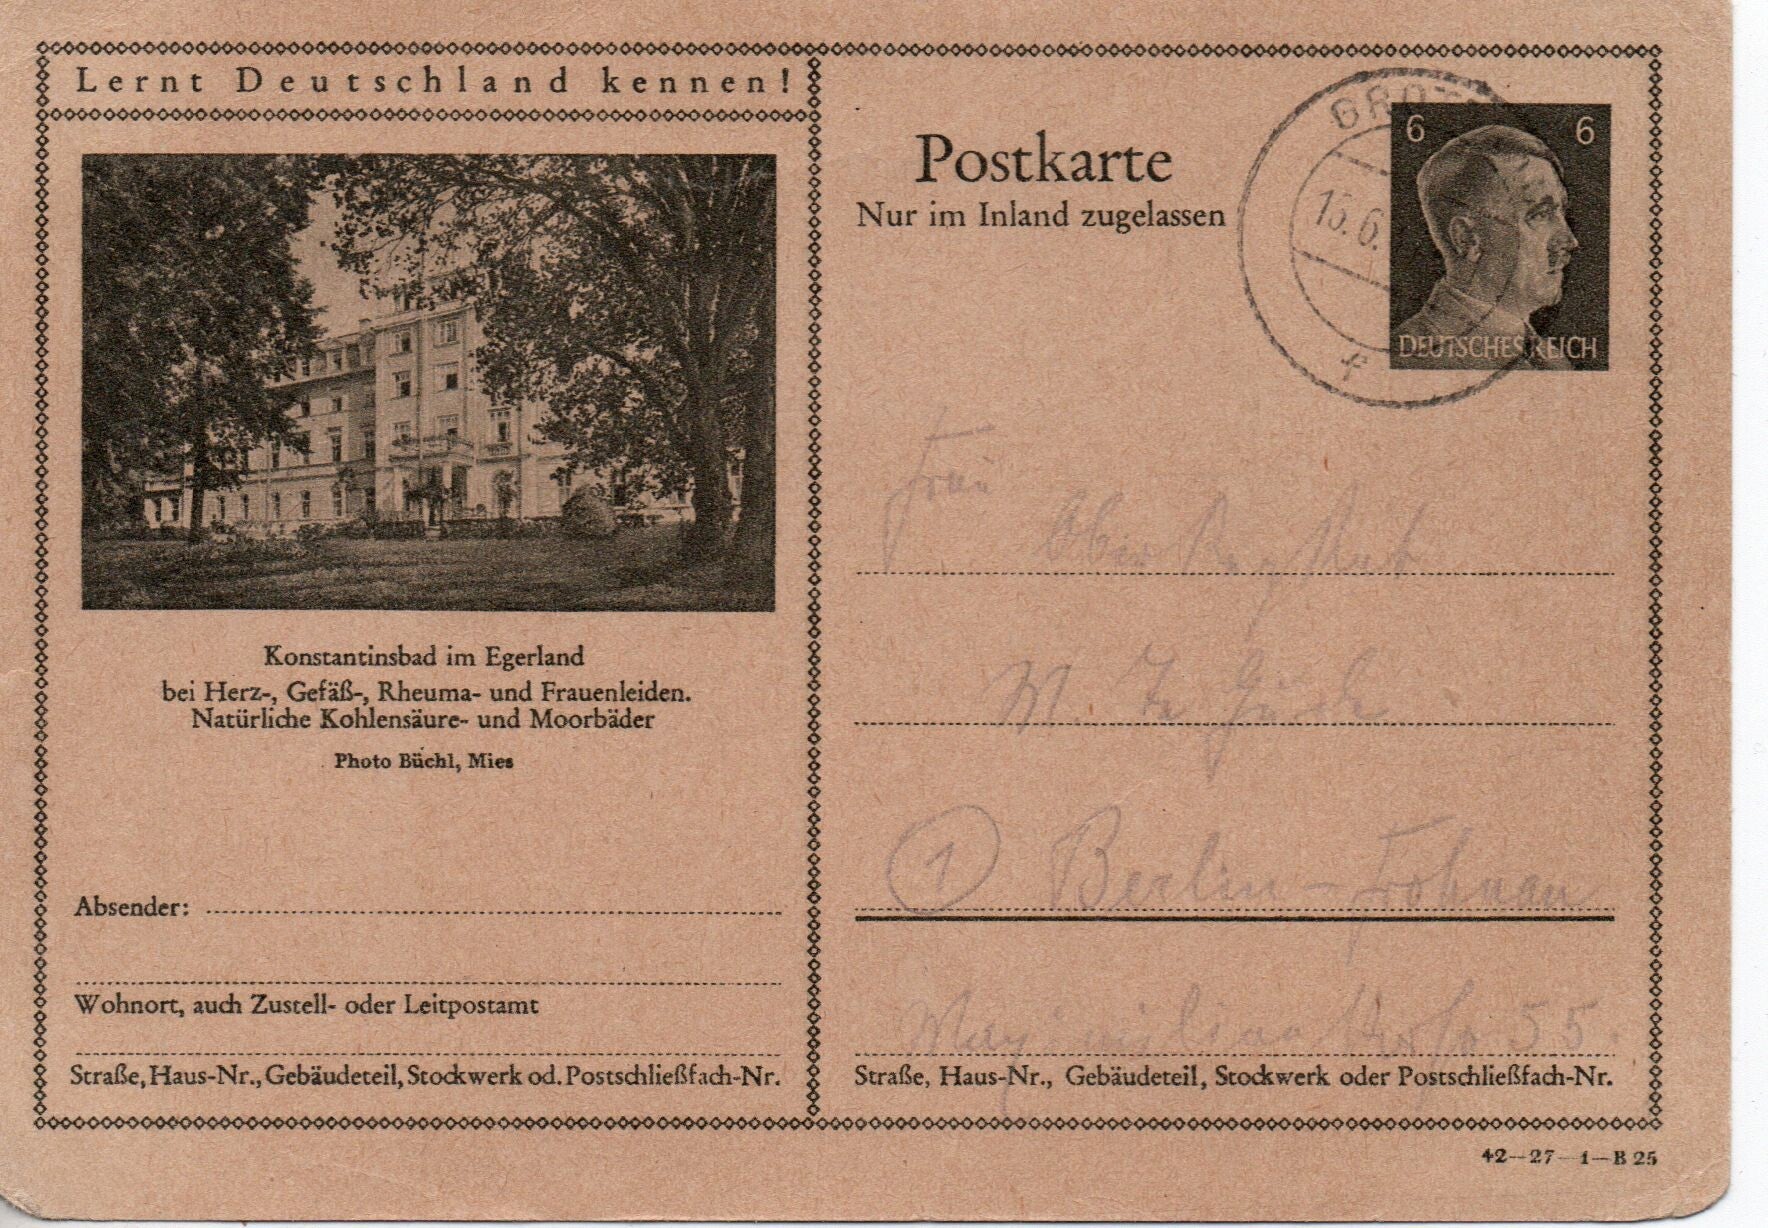 Lernt Deutschland kennen!
Konstantinsbad im Egerland
bei Herz-, Gefäß-, Rheuma- und Frauenleiden.
Natürliche Kohlensäure- und Moorbäder
Photo Büchl, Mies
Absender:
Wohnort, auch Zustell- oder Leitpostamt
Straße, Haus-Nr., Gebäudeteil, Stockwerk od. Postschließfach-Nr.
Postkarte
Nur im Inland zugelassen
15.6.
6 6
DEUTSCHES REICH
Frau
W.
1 Berlin-Frohnau
55.
Straße, Haus-Nr., Gebäudeteil, Stockwerk oder Postschließfach-Nr.
42—27—1—B 25